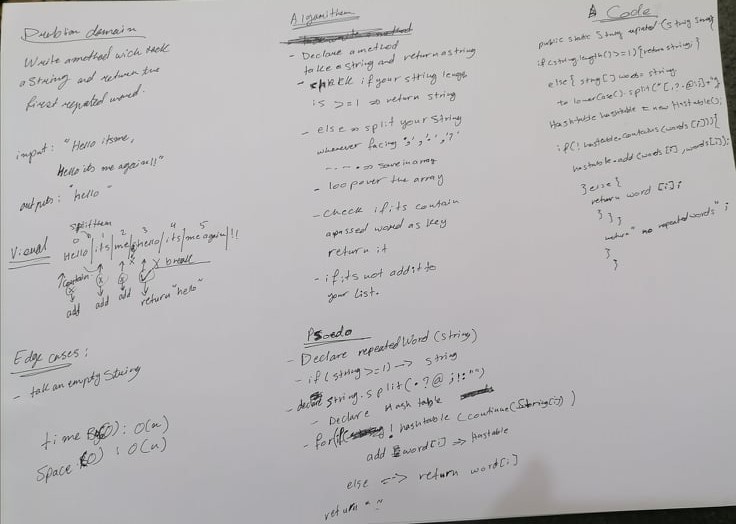 Problem domain
Write a method wich took
a String and return the
first repeated word.
input: "Hello itsme,
Hello its me again!!"
outputs: "hello"
Visual
split them
0 1 2 3 4 5
Hello|its|me|hello|its|me again|!!
contain x x x break
add add add return "hello"
Edge cases:
- tak an empty String
time : O(n)
Space : O(n)
Algorithem
- Declare a method
take a string and return a string
- check if your string length
is >=1 => return string
- else => split your String
whenever facing
save in array
- loop over the array
- check if its contain
apassed word as key
return it
- if its not add it to
your list.
Psoedo
- Declare repeatedWord (String)
- if (string >=1) --> string
- string.split(•?@;!:"")
- Declare Hash table
- for(if ! hashtable (continue(String(i))
add word[i] => Hastable
else => return word[i]
return " "
Code
public static String repeated (String
if (string.length() >=1) {return string;}
else { string[] words = string.
to lowerCase().split("[,?.@:;]+")
Hashtable hashtable = new Hastable();
if(! hastable.contains(words[i])){
hastable.add(words[i], words[i]);
} else {
return word [i];
} } }
return " no repeated words" ;
}
}